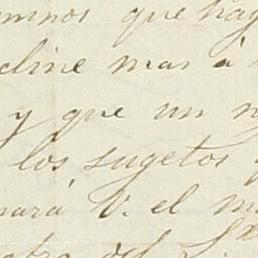 que hag
cline mas á
y que un
los sugetos
nará V. el m